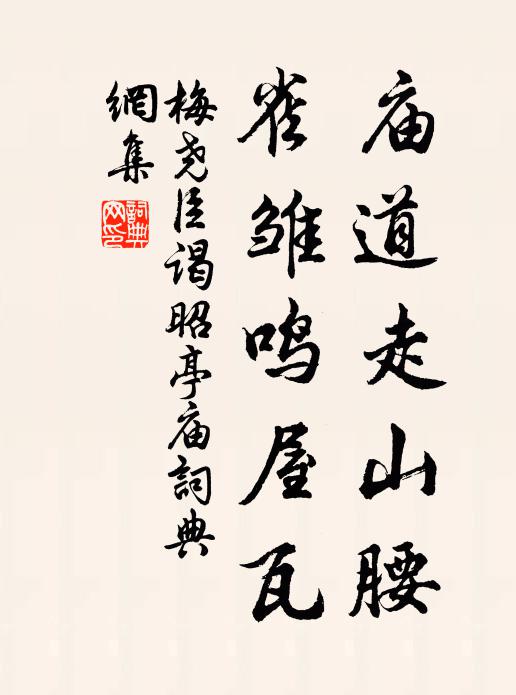 庙道走山腰
雀雏鸣屋瓦
梅尧臣谒昭亭庙詞典
網集
詞典
网印